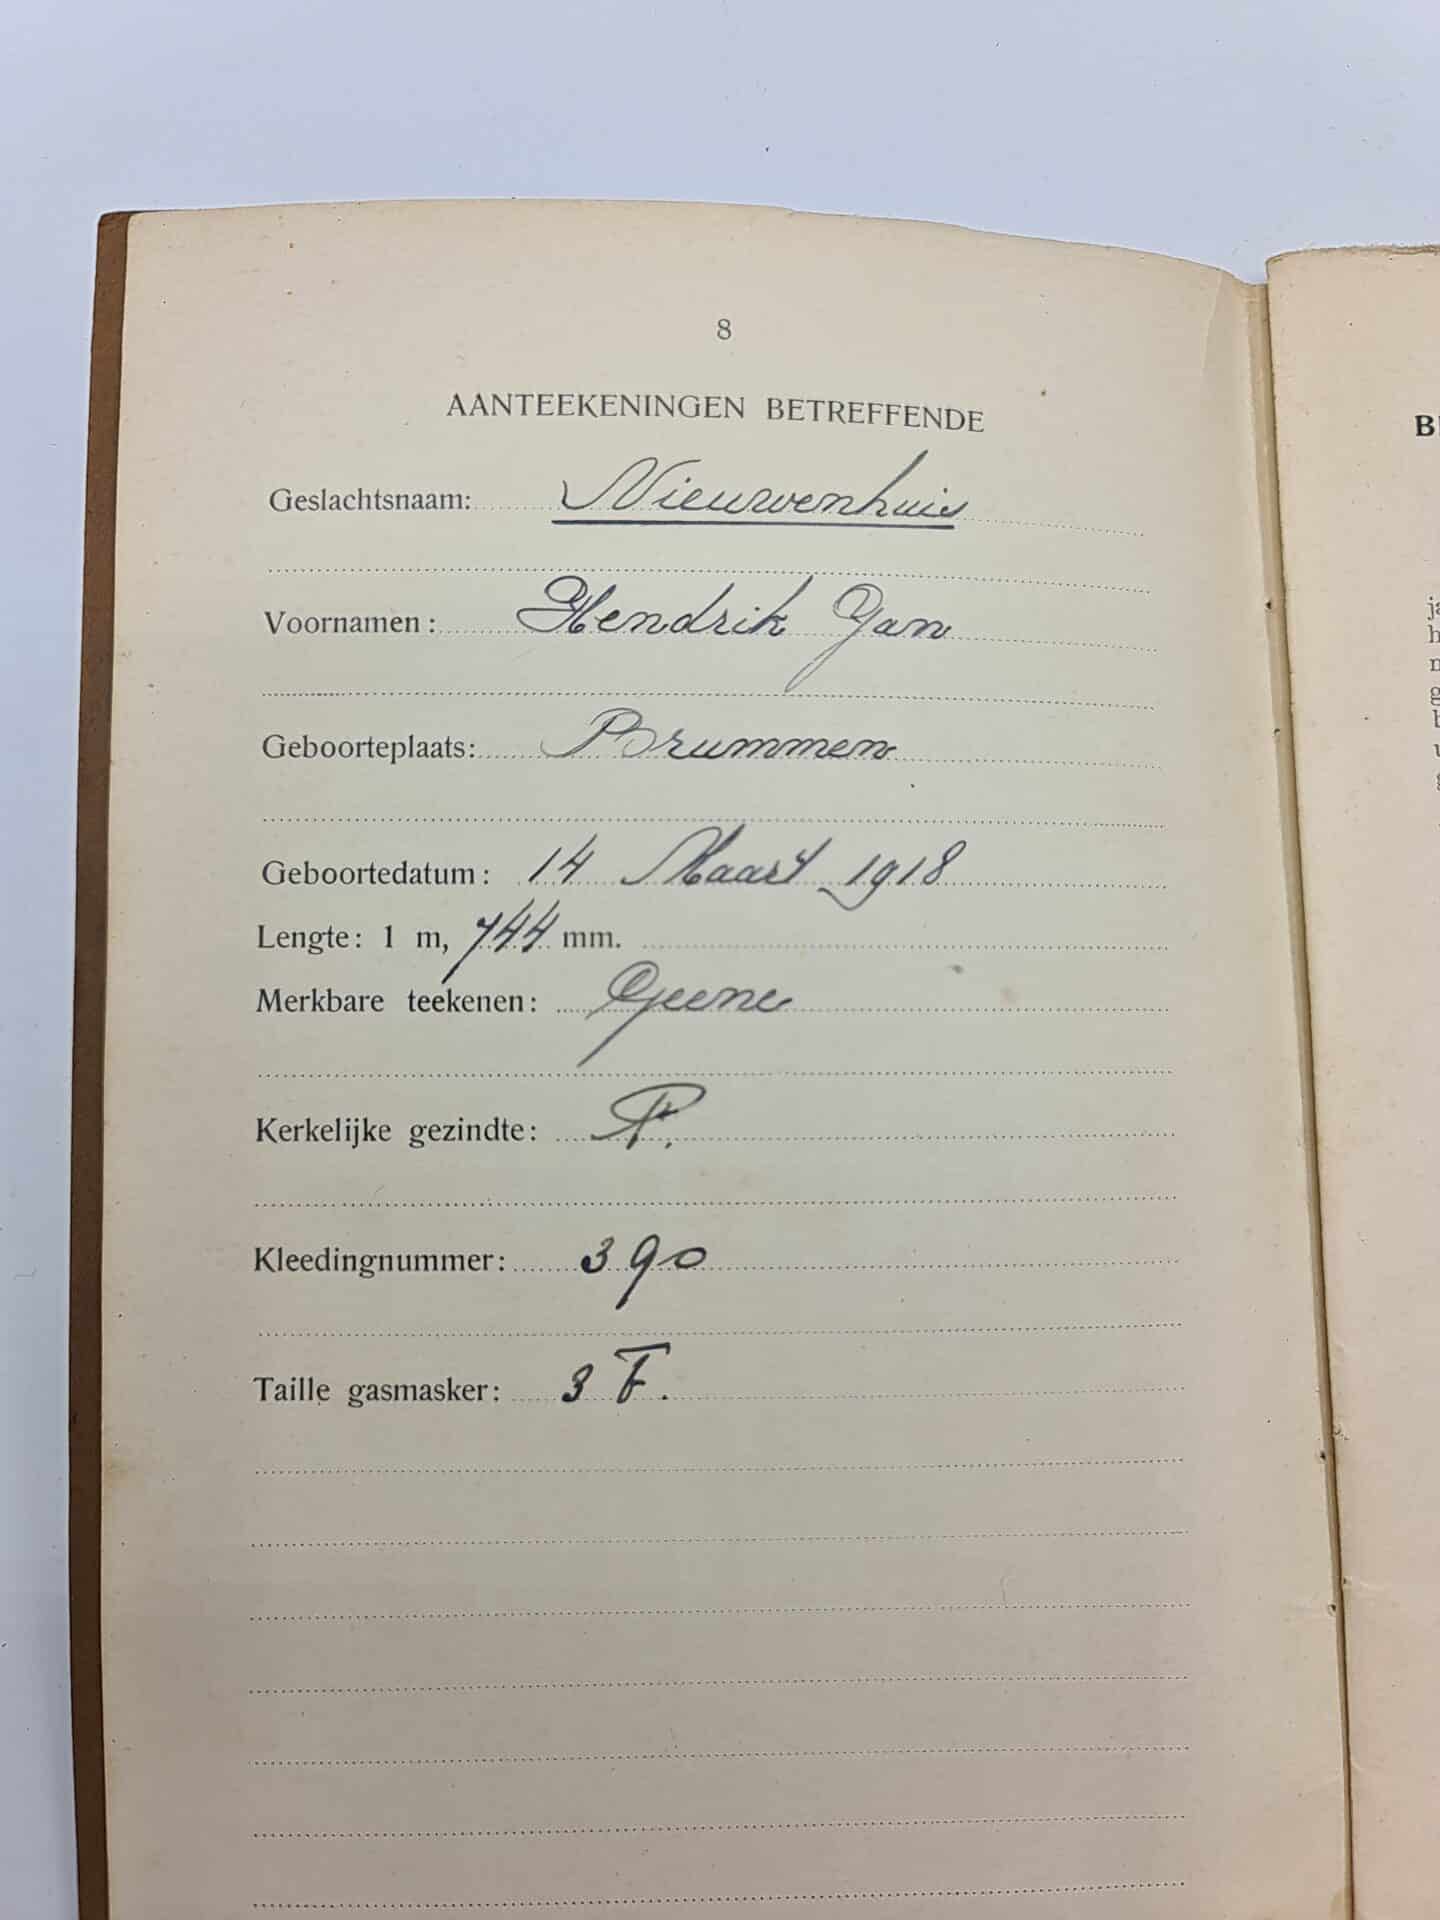 8
AANTEEKENINGEN BETREFFENDE
Geslachtsnaam: Nieuwenhuis
Voornamen: Hendrik Jan
Geboorteplaats: Brummen
Geboortedatum: 14 Maart 1918
Lengte: 1 m, 744 mm.
Merkbare teekenen: Geene
Kerkelijke gezindte: P.
Kleedingnummer: 390
Taille gasmasker: 3 F.